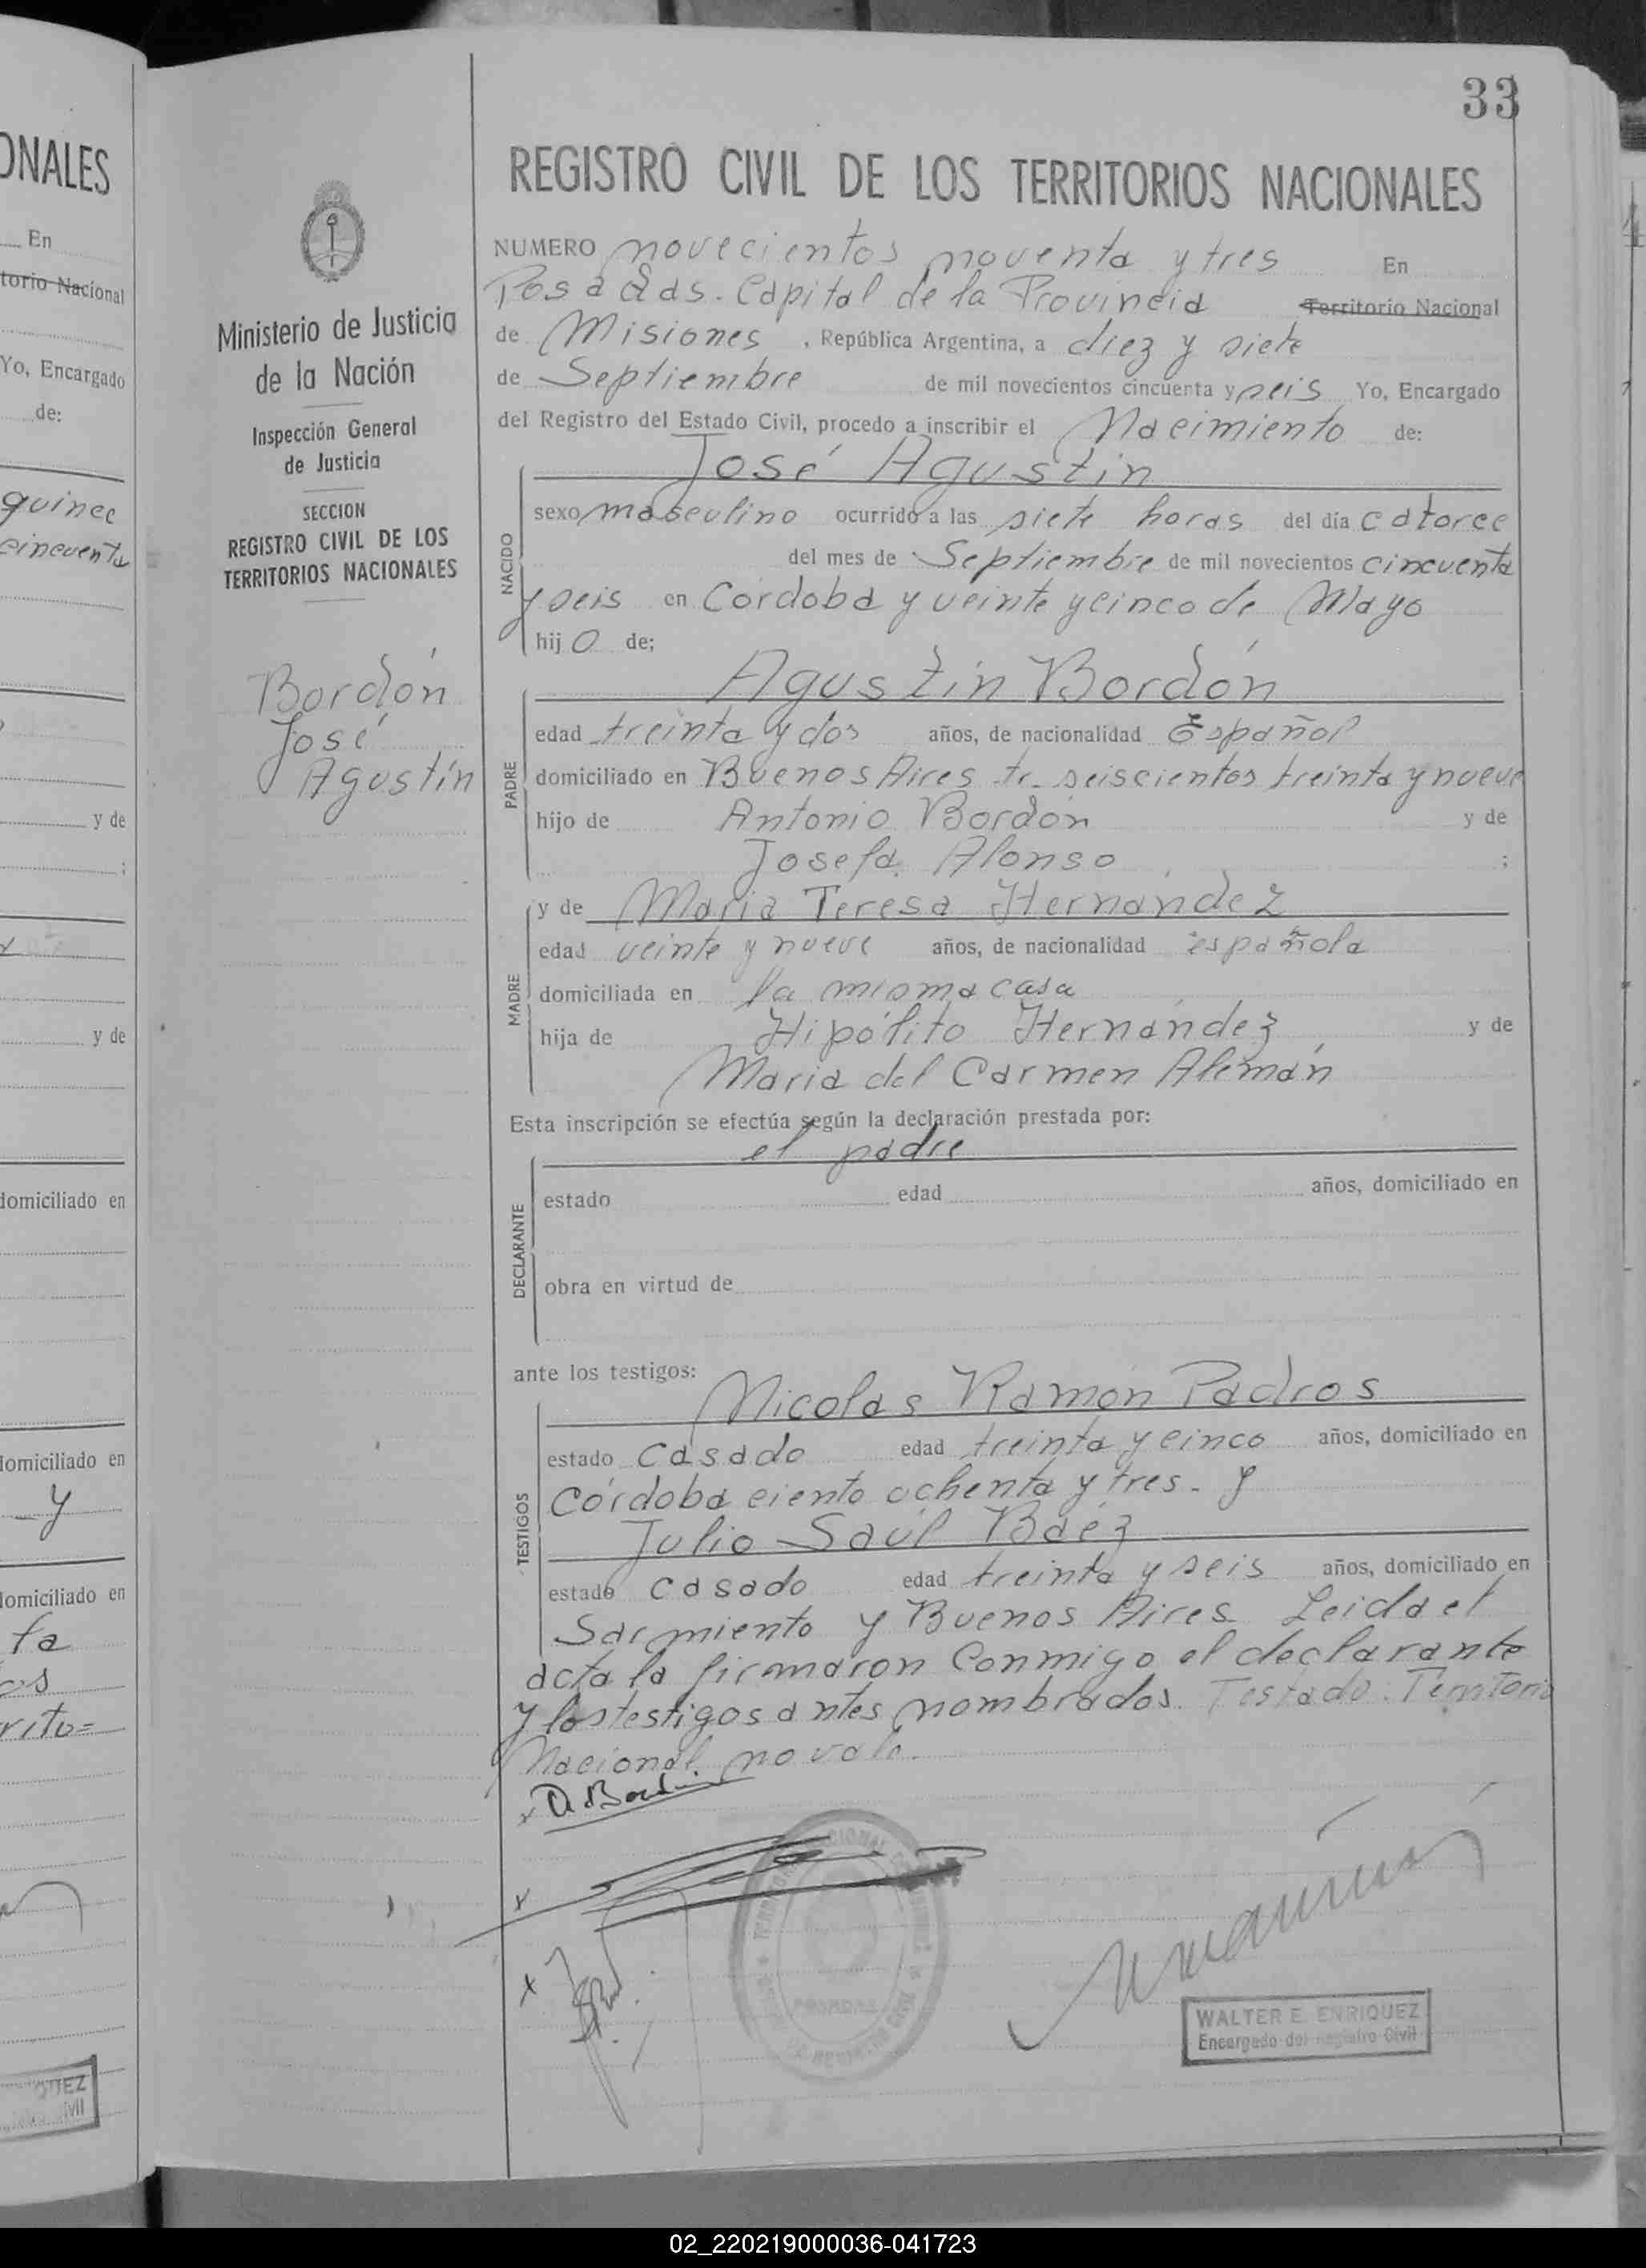 ONALES
En
torio Nacional
Yo, Encargado
de:
quince
cincuenta
y de
;
y de
domiciliado en
domiciliado en
y
domiciliado en
ta
os
rito=
QUEZ
ivil
Ministerio de Justicia
de la Nación
Inspección General
de Justicia
SECCION
REGISTRO CIVIL DE LOS
TERRITORIOS NACIONALES
Bordón
José
Agustín
33
REGISTRO CIVIL DE LOS TERRITORIOS NACIONALES
NUMERO novecientos noventa y tres En
Posadas. Capital de la Provincia Territorio Nacional
de Misiones, República Argentina, a diez y siete
de Septiembre de mil novecientos cincuenta y seis Yo, Encargado
del Registro del Estado Civil, procedo a inscribir el Nacimiento de:
NACIDO
José Agustín
sexo masculino ocurrido a las siete horas del día catorce
del mes de Septiembre de mil novecientos cincuenta
y seis en Córdoba y veinte y cinco de Mayo
hijo de;
PADRE
Agustín Bordón
edad treinta y dos años, de nacionalidad Español
domiciliado en Buenos Aires tr. seiscientos treinta y nueve
hijo de Antonio Bordón y de
Josefa Alonso ;
MADRE
y de María Teresa Hernández
edad veinte y nueve años, de nacionalidad española
domiciliada en la misma casa
hija de Hipólito Hernández y de
María del Carmen Alemán
Esta inscripción se efectúa según la declaración prestada por:
DECLARANTE
el padre
estado edad años, domiciliado en
obra en virtud de
ante los testigos:
TESTIGOS
Nicolas Ramón Padros
estado casado edad treinta y cinco años, domiciliado en
Córdoba ciento ochenta y tres. y
Julio Saúl Baéz
estado casado edad treinta y seis años, domiciliado en
Sarmiento y Buenos Aires Leida el
acta la firmaron conmigo el declarante
y los testigos antes nombrados. Testado: Territorio
Nacional no vale.
x A. Bordón
x
x
POSADAS
WALTER E. ENRIQUEZ
Encargado del Registro Civil
02_220219000036-041723